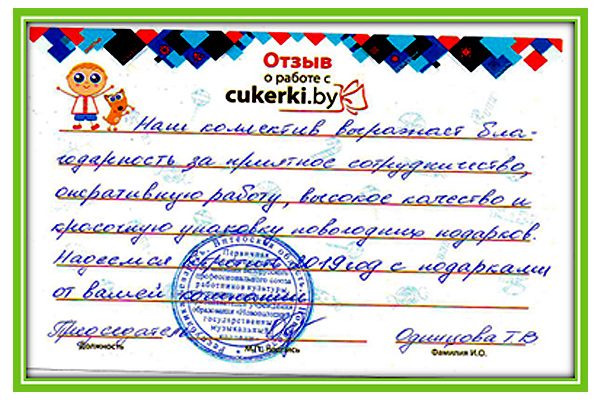 Отзыв
о работе с
cukerki.by
Наш коллектив выражает бла-
годарность за приятное сотрудничество,
оперативную работу, высокое качество и
красочную упаковку новогодних подарков.
Надеемся встретить 2019 год с подарками
от вашей компании
Председатель
Одинцова Т.В
Должность
М.П. Подпись
Фамилия И.О.
Витебская область
Первичная
профсоюзного союза
работников культуры
государственный
музыкальный